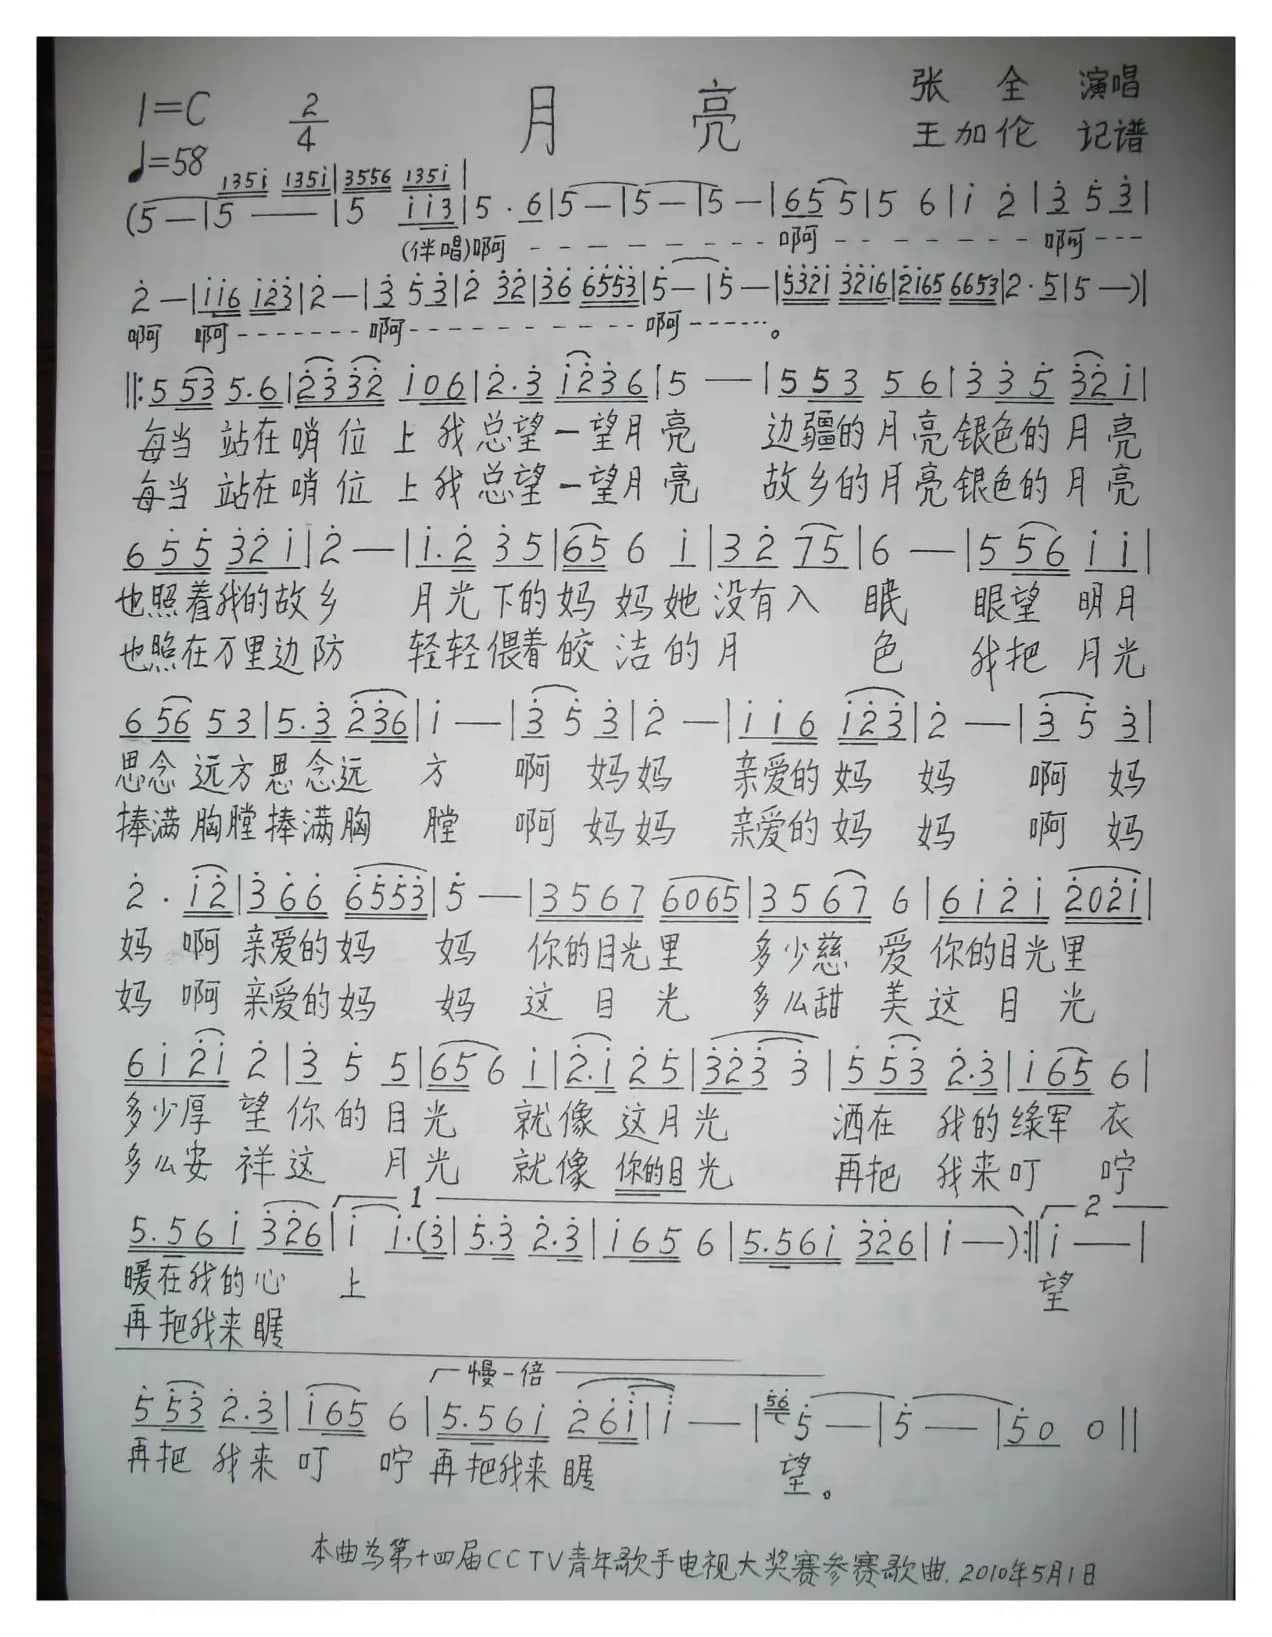 月 亮
1=C 2/4
♩=58
张 全 演唱
王加伦 记谱
1 3 5 i 1 3 5 i | 3 5 5 6 1 3 5 i |
(5 — | 5 — | 5 i i 3 | 5 . 6 | 5 — | 5 — | 5 — | 6 5 5 | 5 6 | i 2 | 3 5 3 |
(伴唱)啊 - - - - - - - - 啊 - - - - - - - 啊 - - -
2 — | i i 6 i 2 3 | 2 — | 3 5 3 | 2 3 2 | 3 6 6 5 5 3 | 5 — | 5 — | 5 3 2 i 3 2 i 6 | 2 i 6 5 6 6 5 3 | 2 . 5 | 5 —) |
啊 啊 - - - - - - - 啊 - - - - - - - - - - - 啊 - - - - - - 。
||: 5 5 3 5 . 6 | 2 3 3 2 i 0 6 | 2 . 3 i 2 3 6 | 5 — | 5 5 3 5 6 | 3 3 5 3 2 i |
每当 站在哨 位 上 我 总望一望月 亮 边疆的 月 亮 银色的 月 亮
每当 站在哨 位 上 我 总望一望月 亮 故乡的 月 亮 银色的 月 亮
6 5 5 3 2 i | 2 — | i . 2 3 5 | 6 5 6 i | 3 2 7 5 | 6 — | 5 5 6 i i |
也照着我的故乡 月光 下的妈 妈她 没有入 眠 眼望 明月
也照在万里边防 轻轻偎着皎 洁的月 色 我把 月光
6 5 6 5 3 | 5 . 3 2 3 6 | i — | 3 5 3 | 2 — | i i 6 i 2 3 | 2 — | 3 5 3 |
思念 远方思念远 方 啊 妈妈 亲爱的 妈 妈 啊 妈
捧满 胸膛捧满胸 膛 啊 妈妈 亲爱的 妈 妈 啊 妈
2 . i 2 | 3 6 6 6 5 5 3 | 5 — | 3 5 6 7 6 0 6 5 | 3 5 6 7 6 | 6 i 2 i 2 0 2 i |
妈 啊 亲爱的妈 妈 你的目光里 多少慈 爱 你的目光里
妈 啊 亲爱的妈 妈 这 目 光 多么甜 美 这 目 光
6 i 2 i 2 | 3 5 5 | 6 5 6 i | 2 . i 2 5 | 3 2 3 3 | 5 5 3 2 . 3 | i 6 5 6 |
多少厚 望 你 的 目 光 就像 这月光 洒在 我的绿军 衣
多么安 祥 这 月 光 就像 你的目光 再把 我来叮 咛
1 2
5 . 5 6 i 3 2 6 | i i . (3 | 5 . 3 2 . 3 | i 6 5 6 | 5 . 5 6 i 3 2 6 | i —) :|| i — |
暖在我的心 上 望
再把我来瞩
慢一倍
5 5 3 2 . 3 | i 6 5 6 | 5 . 5 6 i 2 6 i | i — | 5 6 5 — | 5 — | 5 0 0 ||
再把 我来 叮 咛 再把我来 瞩 望。
本曲为第十四届CCTV青年歌手电视大奖赛参赛歌曲. 2010年5月1日